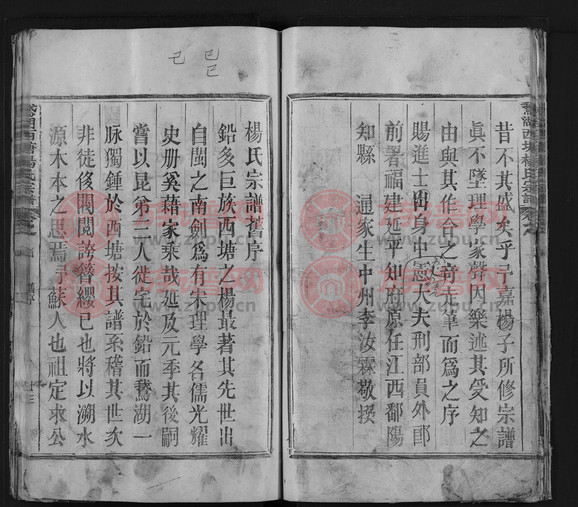 昔不其盛矣乎予嘉楊子所修宗譜
眞不墜理學家聲因樂述其受知之
由與其作合之奇走筆而爲之序
賜進士出身中憲大夫刑部員外郎
前署福建延平知府原任江西鄱陽
知縣 通家生中州李汝霖敬撰
楊氏宗譜舊序
鉛多巨族西塘之楊最著其先世出
自閩之南劍爲有宋理學名儒光耀
史册奚藉家乘哉延及元季其後嗣
嘗以昆弟二人徙宅於鉛而鵞湖一
脉獨鍾於西塘按其譜系稽其世次
非徒侈閥閱誇簪纓已也將以溯水
源木本之思焉予蘇人也祖定求公
鵞湖西塘楊氏宗譜
己 巳
已